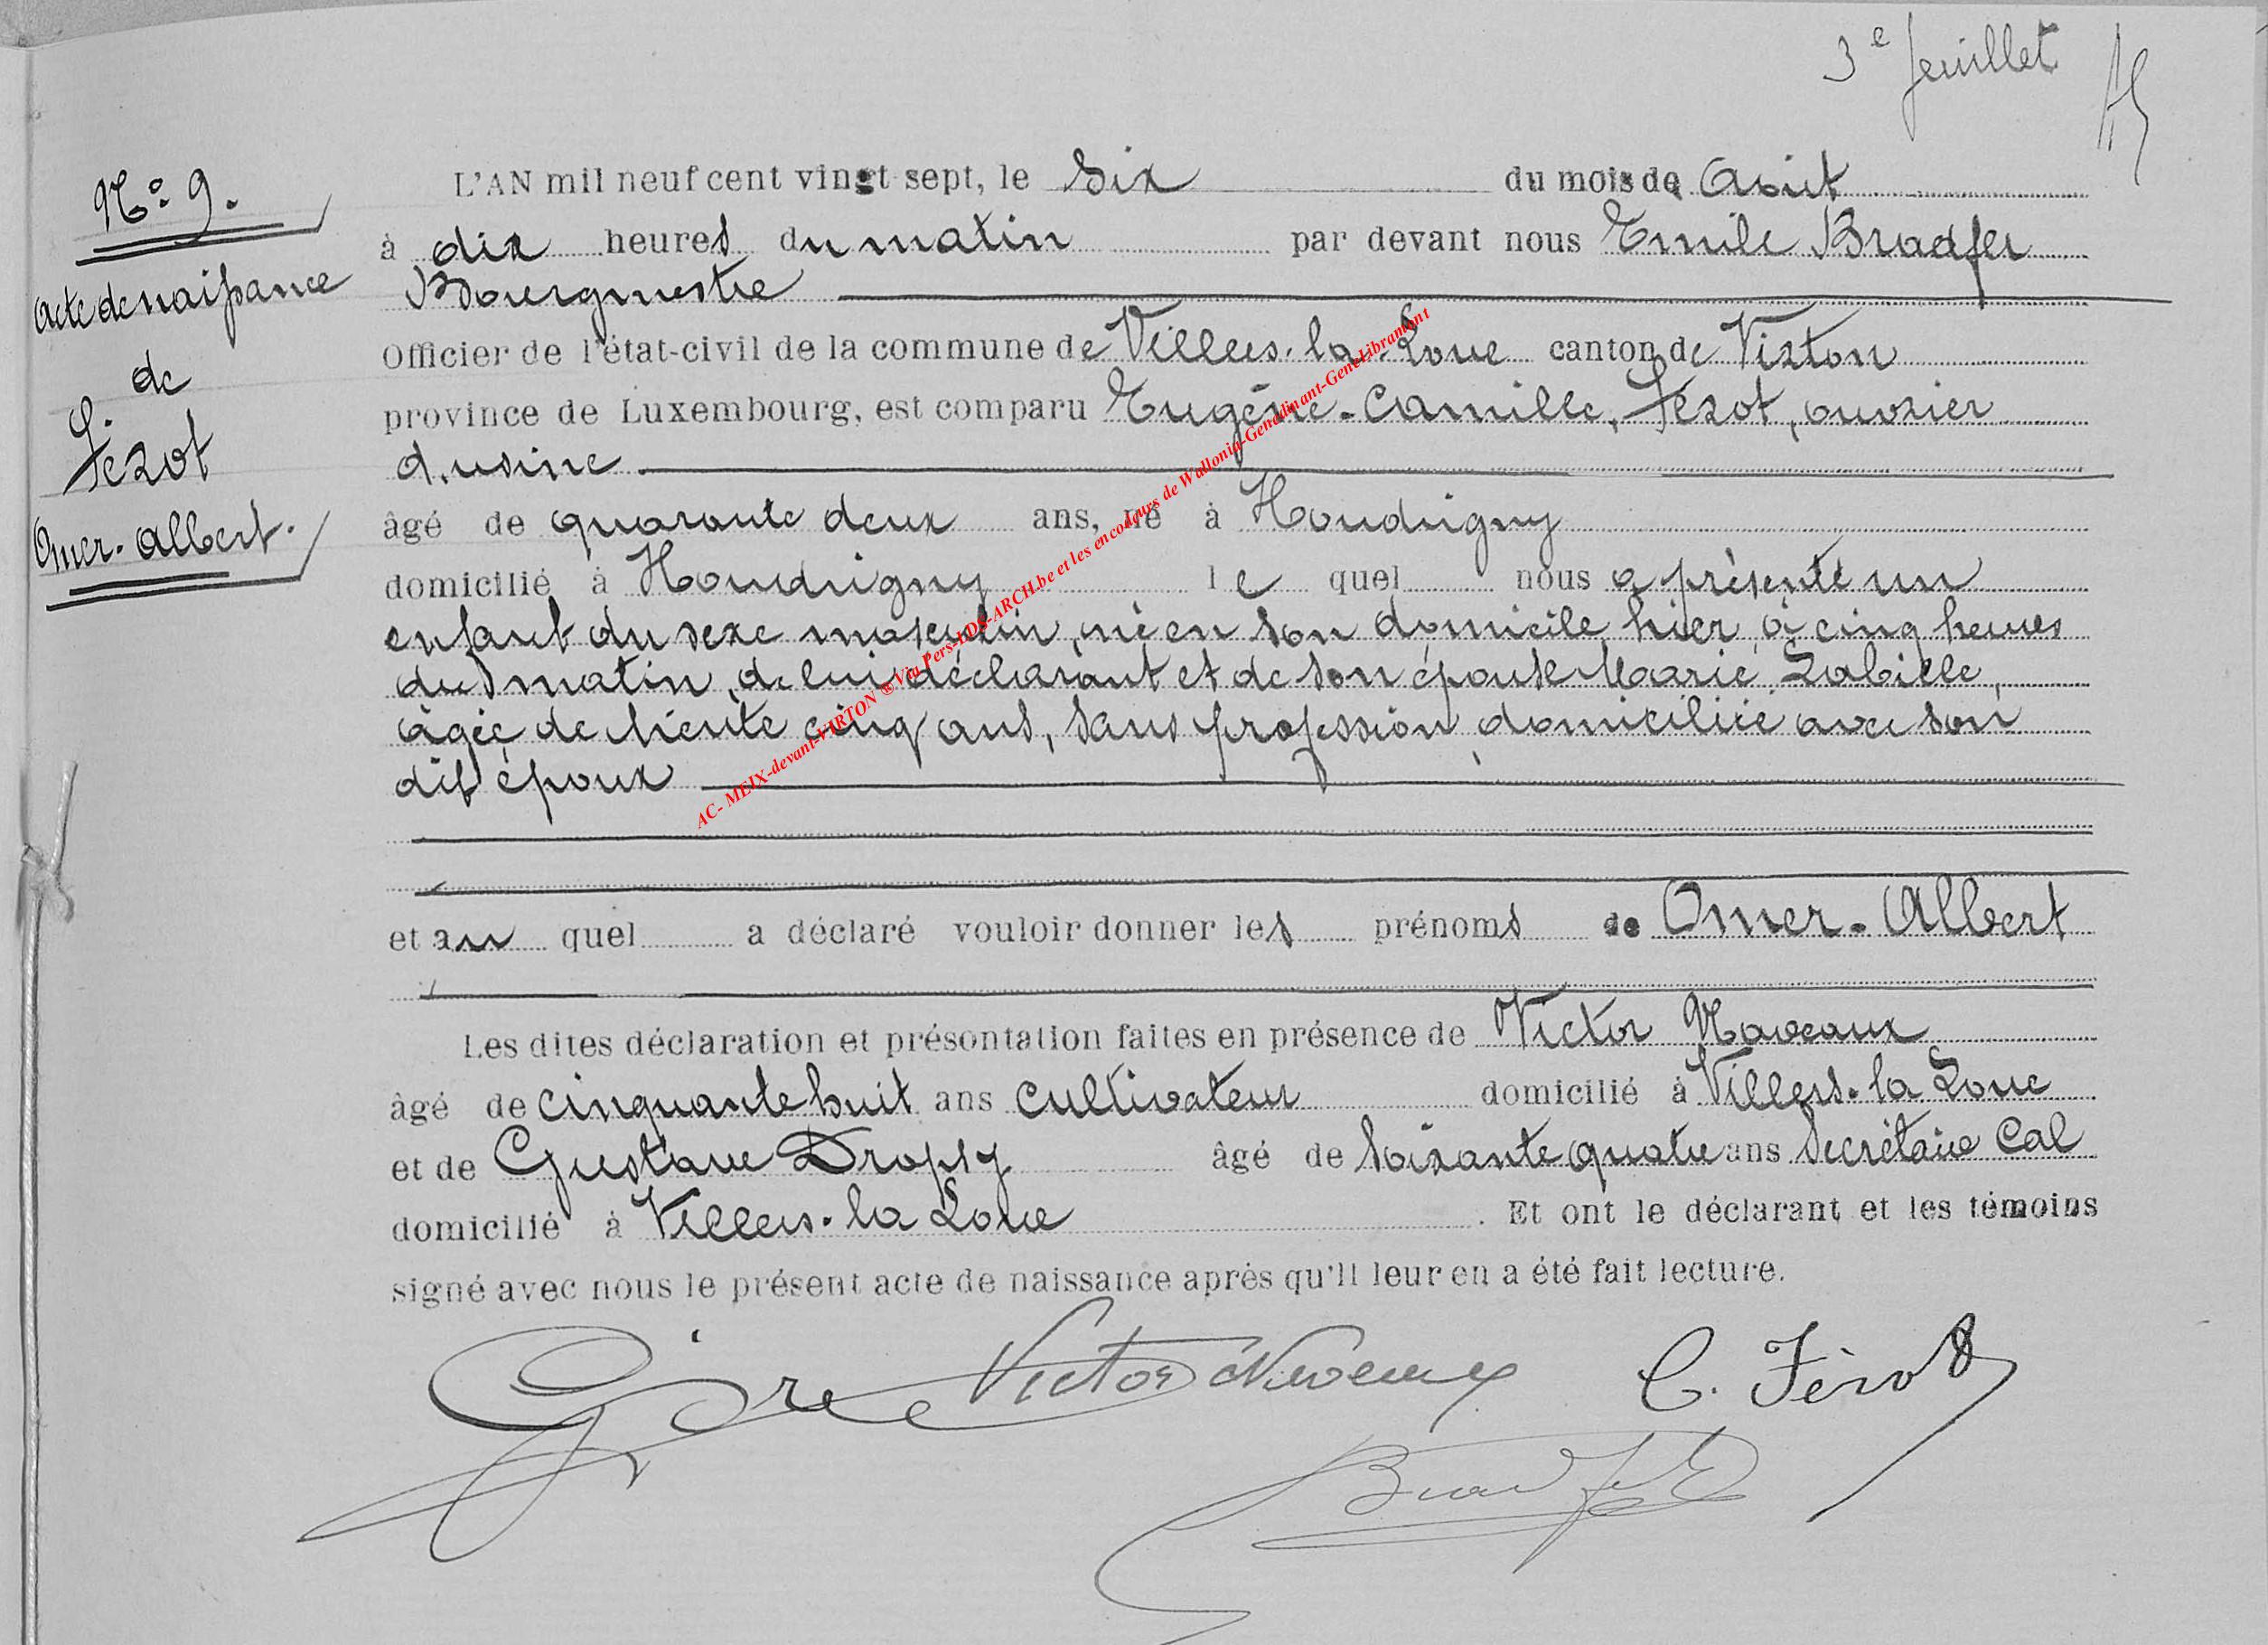 3e feuillet
N° 9.
Acte de naissance
de
Fézot
Omer-Albert.
L'AN mil neuf cent vingt sept, le Six du mois de Août
à dix heures du matin par devant nous Emile Bradfer
Bourgmestre
Officier de l'état-civil de la commune de Villers-la-Loue canton de Virton
province de Luxembourg, est comparu Eugène-Camille, Fézot, ouvrier
d'usine
âgé de quarante deux ans, né à Houdrigny
domicilié à Houdrigny le quel nous a présenté un
enfant du sexe masculin, né en son domicile, hier, à cinq heures
du matin, de lui déclarant et de son épouse Marie Labille,
âgée de trente cinq ans, sans profession, domiciliée avec son
dit époux
et au quel a déclaré vouloir donner les prénoms de Omer-Albert
Les dites déclaration et présentation faites en présence de Victor Naveaux
âgé de cinquante huit ans cultivateur domicilié à Villers-la Loue
et de Gustave Dropsy âgé de soixante quatre ans Secrétaire Cal
domicilié à Villers-la Loue . Et ont le déclarant et les témoins
signé avec nous le présent acte de naissance après qu'il leur en a été fait lecture.
Victor Naveaux C. Fézot
Bradfer
AC- MEIX-devant-VIRTON ® Via Pers-LDS-ARCH.be et les encodeurs de Wallonia-Genedinant-GeneLibramont